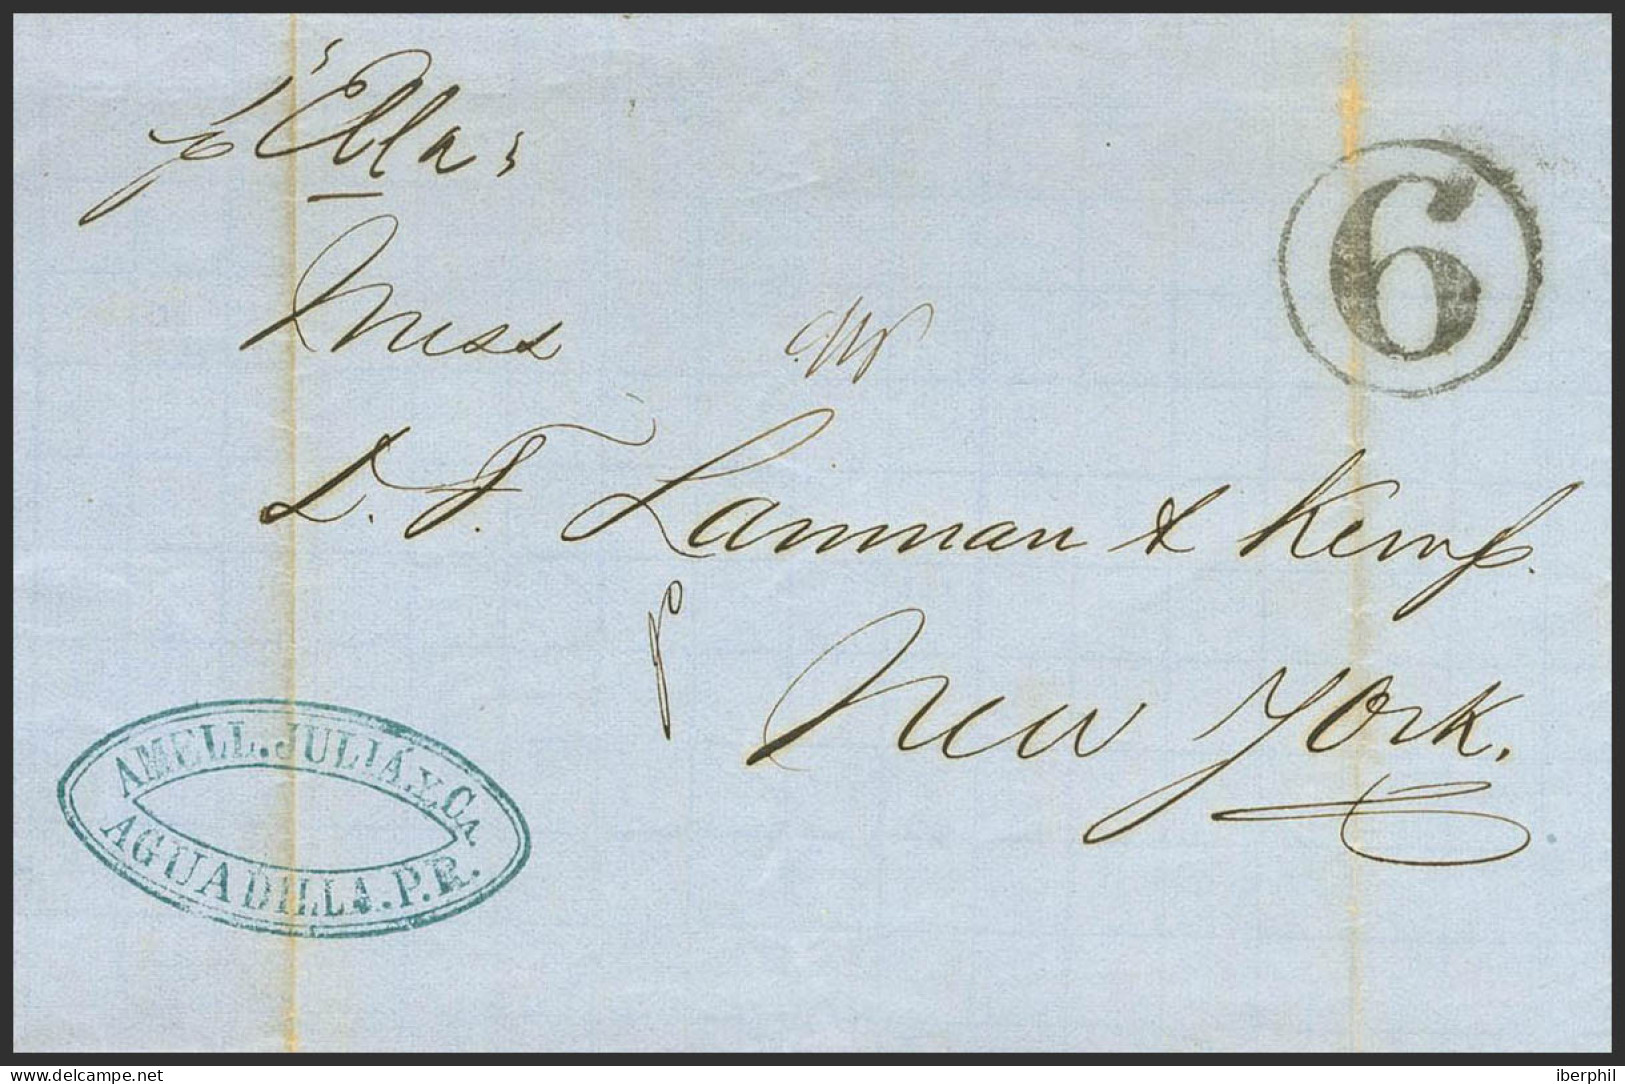 p "Ella"
6
Mess
D. T. Lanman & Kemp.
New York.
AMELL. JULIÁ. Y CA.
AGUADILLA. P. R.
delcampe.net
iberphil